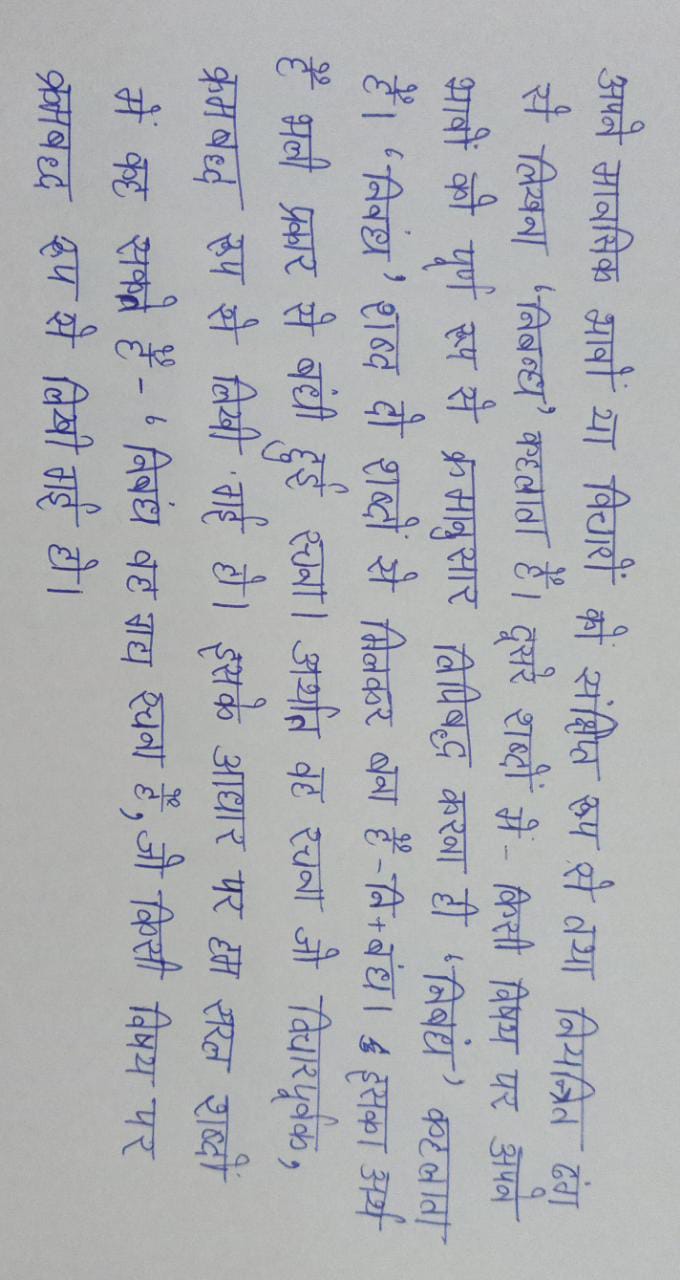 अपने मानसिक भावों या विचारों को संक्षिप्त रूप से तथा नियन्त्रित ढंग
से लिखना ‘निबन्ध’ कहलाता है। दूसरे शब्दों में - किसी विषय पर अपने
भावों को पूर्ण रूप से क्रमानुसार लिपिबद्ध करना ही ‘निबंध’ कहलाता
है। ‘निबंध’ शब्द दो शब्दों से मिलकर बना है - नि + बंध। इसका अर्थ
है भली प्रकार से बंधी हुई रचना। अर्थात वह रचना जो विचारपूर्वक,
क्रमबध्द रूप से लिखी गई हो। इसके आधार पर हम सरल शब्दों
में कह सकते है - ‘ निबंध वह गद्य रचना है, जो किसी विषय पर
क्रमबध्द रूप से लिखी गई हो।